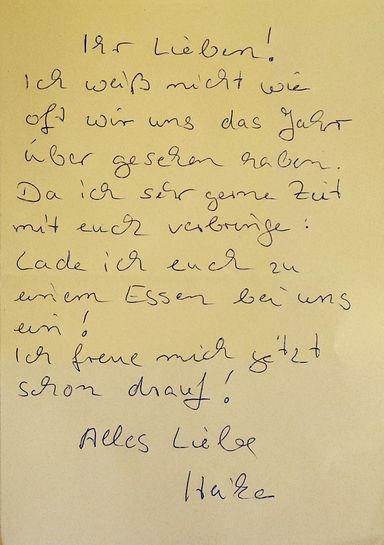 Ihr Lieben!
Ich weiß nicht wie
oft wir uns das Jahr
über gesehen haben.
Da ich sehr gerne Zeit
mit euch verbringe:
Lade ich euch zu
einem Essen bei uns
ein!
Ich freue mich jetzt
schon drauf!
Alles Liebe
Heike